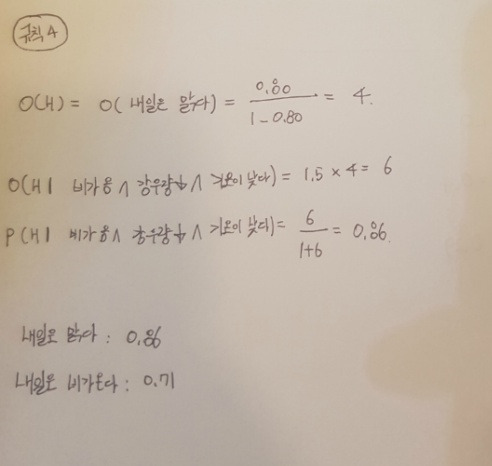 규칙4
O(H) = O(내일은 맑다) = 0.80 / 1-0.80 = 4.
O(H | 비가옴 ∧ 강우량↓ ∧ 기온이 낮다) = 1.5 × 4 = 6
P(H | 비가옴 ∧ 강우량↓ ∧ 기온이 낮다) = 6 / 1+6 = 0.86.
내일은 맑다 : 0.86
내일은 비가온다 : 0.71